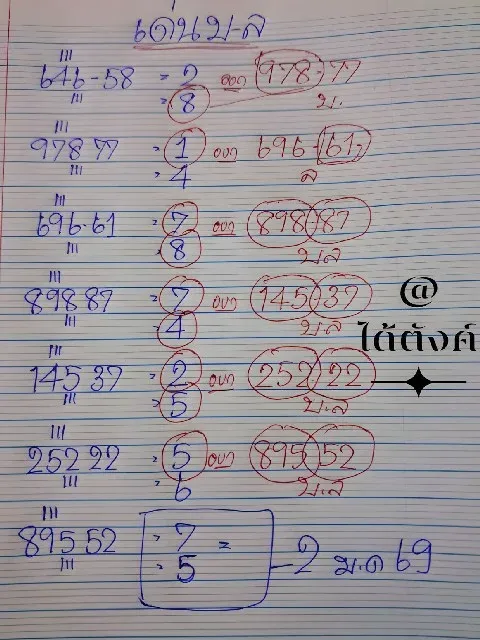 เด่นบ-ล
646-58 = 2 ออก 978-77
= 8 บ.
97877 = 1 ออก 696-61
= 4 ล
696-61 = 7 ออก 898-87
= 8 บ.ล
89887 = 7 ออก 145-37
= 4 บ.ล
@
ได้ตังค์
14537 = 2 ออก 252-22
= 5 บ.ล
25222 = 5 ออก 895-52
= 6 บ.ล
89552 = 7 =
= 5 - 2 ม.ค 69